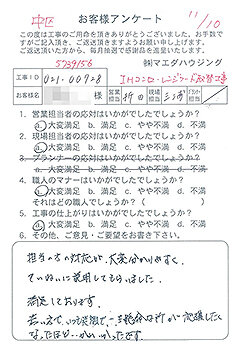 中区
お客様アンケート
11/10
この度は工事のご用命を頂きありがとうございました。お手数で
すがご記入頂き、ご返送頂きますようお願い申し上げます。
ご返送頂いた方から、毎月抽選で感謝品を進呈いたします。
5739156
㈱マエダハウジング
工事ID
021-00928
IHコンロ・レンジフード取替工事
お客様名
様
営業担当
現場担当
プランナー担当
1. 営業担当者の応対はいかがでしたでしょうか?
a.大変満足 b.満足 c.やや不満 d.不満
2. 現場担当者の応対はいかがでしたでしょうか?
a.大変満足 b.満足 c.やや不満 d.不満
3. プランナーの応対はいかがでしたでしょうか?
a.大変満足 b.満足 c.やや不満 d.不満
4. 職人のマナーはいかがでしたでしょうか?
a.大変満足 b.満足 c.やや不満 d.不満
それはどの職人でしょうか?( )
5. 工事の仕上がりはいかがでしたでしょうか?
a.大変満足 b.満足 c.やや不満 d.不満
6. その他、ご意見・ご要望をお書き下さい。
担当の方の対応が、大変わかりやすく、
ていねいに説明してもらいました。
満足しております。